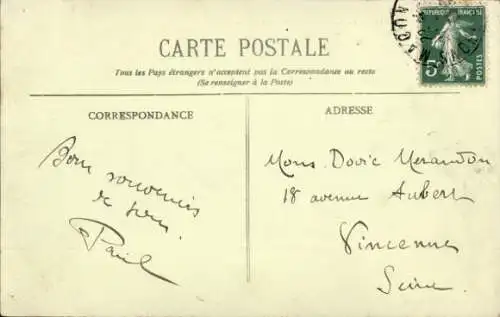 CARTE POSTALE
Tous les Pays étrangers n'acceptent pas la Correspondance au recto
(Se renseigner à la Poste)
CORRESPONDANCE
ADRESSE
Bons souvenirs
de
Paul
Mons. Dovic
18 avenue Aubert
Vincennes
Seine
REPUBLIQUE FRANÇAISE
5c
POSTES